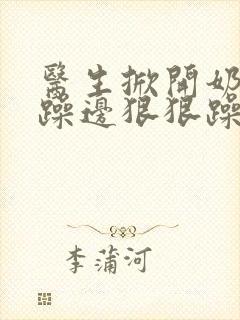 醫生掀開奶
躁邊狠狠躁
李蒲河